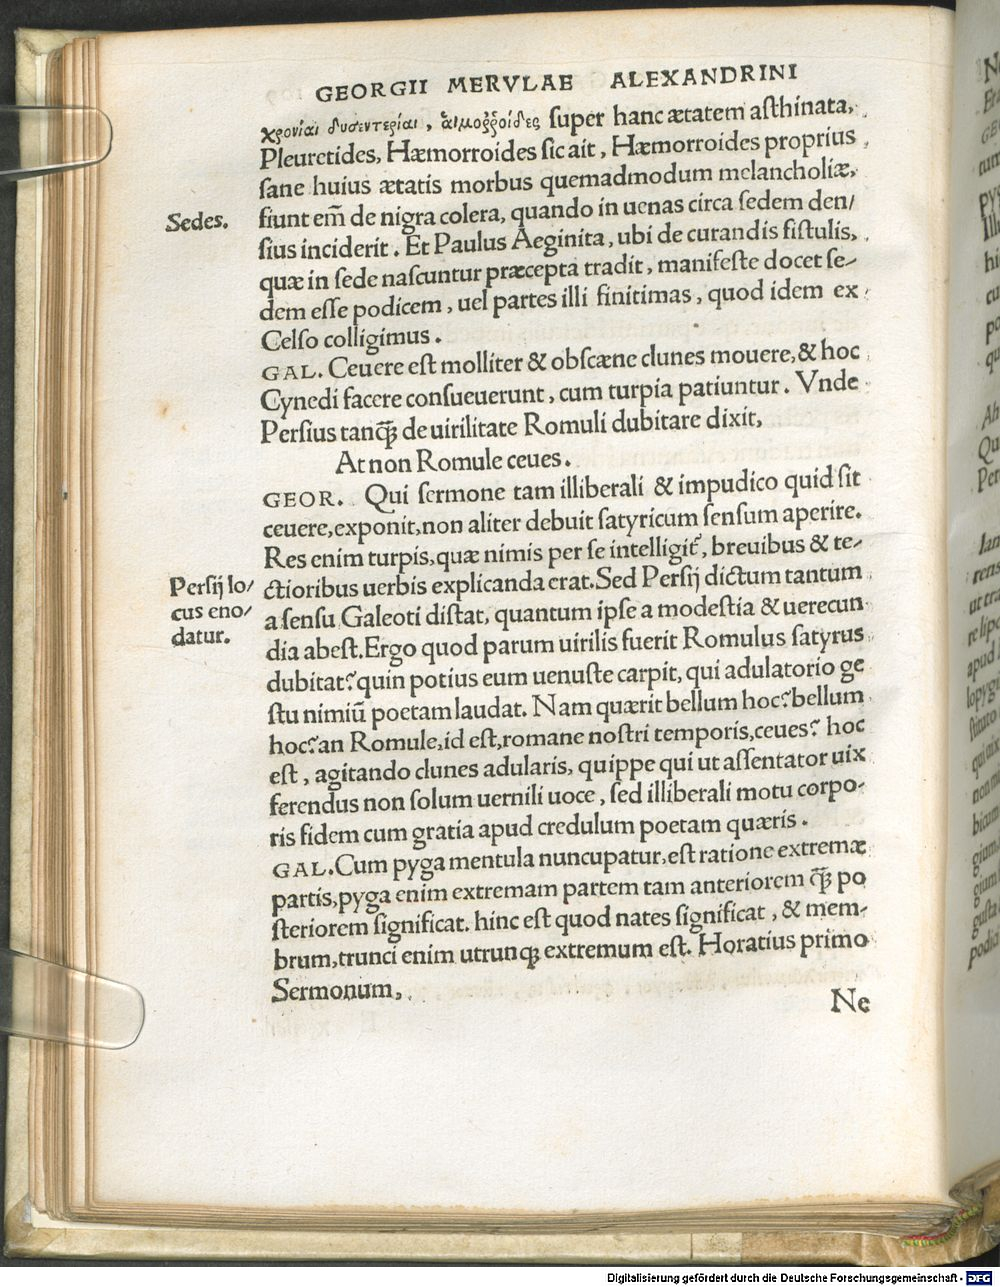 GEORGII MERVLAE ALEXANDRINI
χρονίαι δυσεντερίαι, αἱμοῤῥοίδες super hanc ætatem asthinata,
Pleuretides, Hæmorroides sic ait, Hæmorroides proprius
sane huius ætatis morbus quemadmodum melancholiæ,
Sedes.
fiunt em̃ de nigra colera, quando in uenas circa sedem den/
sius inciderit. Et Paulus Aeginita, ubi de curandis fistulis,
quæ in sede nascuntur præcepta tradit, manifeste docet se-
dem esse podicem, uel partes illi finitimas, quod idem ex
Celso colligimus.
GAL. Ceuere est molliter & obscæne clunes mouere, & hoc
Cynedi facere consueuerunt, cum turpia patiuntur. Vnde
Persius tanq̃ꝫ de uirilitate Romuli dubitare dixit,
At non Romule ceues.
GEOR. Qui sermone tam illiberali & impudico quid sit
ceuere, exponit, non aliter debuit satyricum sensum aperire.
Res enim turpis, quæ nimis per se intelligit᷑, breuibus & te-
Persij lo/
cus eno/
datur.
ctioribus uerbis explicanda erat. Sed Persij dictum tantum
a sensu Galeoti distat, quantum ipse a modestia & uerecun
dia abest. Ergo quod parum uirilis fuerit Romulus satyrus
dubitat? quin potius eum uenuste carpit, qui adulatorio ge
stu nimiũ poetam laudat. Nam quærit bellum hoc? bellum
hoc? an Romule, id est, romane nostri temporis, ceues? hoc
est, agitando clunes adularis, quippe qui ut assentator uix
ferendus non solum uernili uoce, sed illiberali motu corpo-
ris fidem cum gratia apud credulum poetam quæris.
GAL. Cum pyga mentula nuncupatur, est ratione extremæ
partis, pyga enim extremam partem tam anteriorem q̃ꝫ po
steriorem significat. hinc est quod nates significat, & mem-
brum, trunci enim utrunqꝫ extremum est. Horatius primo
Sermonum,
Ne
Digitalisierung gefördert durch die Deutsche Forschungsgemeinschaft - DFG